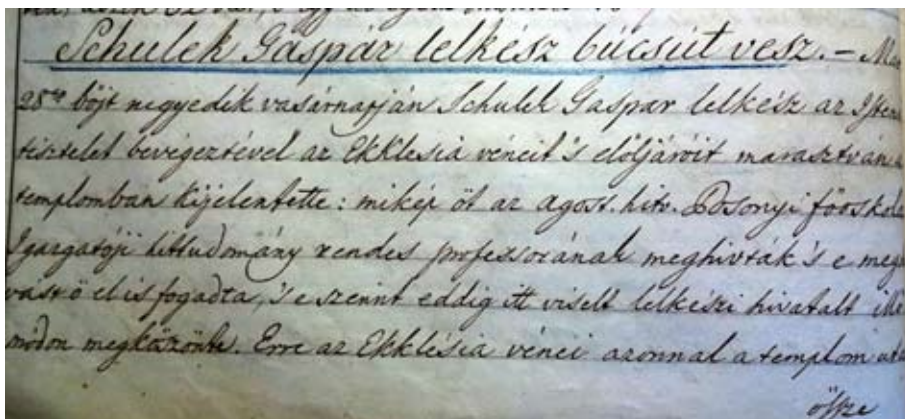 Schulek Gáspár lelkész búcsút vesz. –
28án böjt negyedik vasárnapján Schulek Gaspar lelkész az Isten
tisztelet bevégeztével az Ekklesia véneit 's előljáróit marasztván a
templomban kijelentette: mikép őt az agost. hitv. Posonyi főoskola
Igazgatóji hittudomány rendes professorának meghivták 's e meg
vást ő el is fogadta, 's e szerint eddig itt viselt lelkészi hivatalt
módon megköszönte. Erre az Ekklésia vénei azonnal a templom
össze